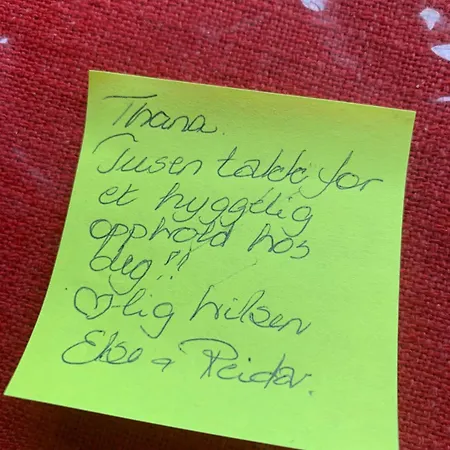 Thana.
Tusen takk for
et hyggelig
opphold hos
deg!!
♡lig hilsen
Else & Reidar.